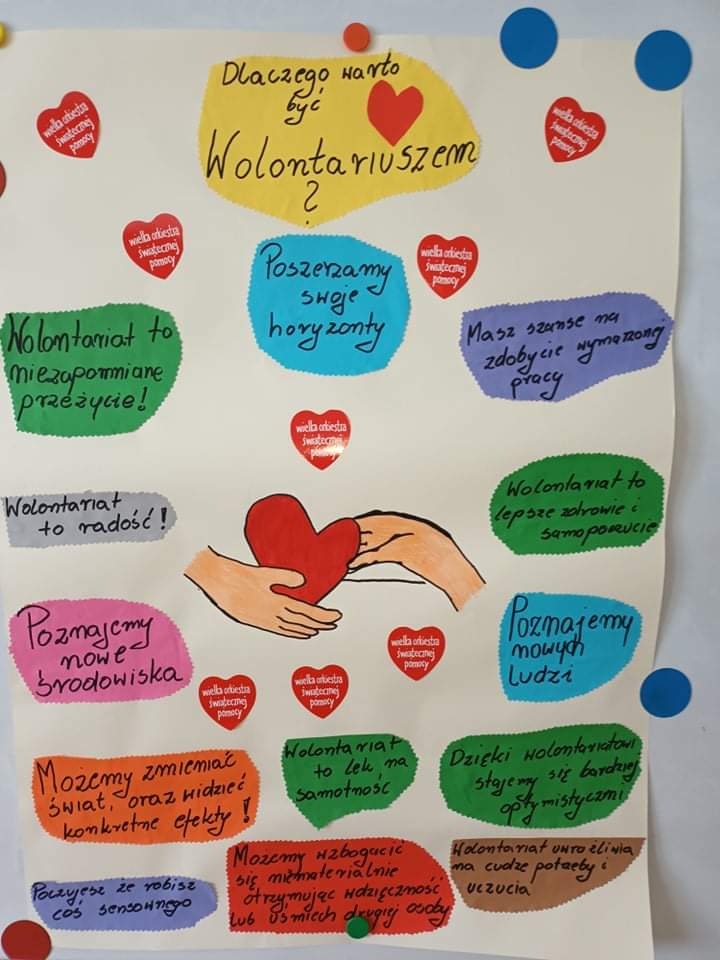 Dlaczego warto
być
Wolontariuszem
?
wielka orkiestra
świątecznej
pomocy
wielka orkiestra
świątecznej
pomocy
wielka orkiestra
świątecznej
pomocy
wielka orkiestra
świątecznej
pomocy
Poszerzamy
swoje
horyzonty
Wolontariat to
niezapomniane
przeżycie!
Masz szanse na
zdobycie wymarzonej
pracy
wielka orkiestra
świątecznej
pomocy
Wolontariat
to radość!
Wolontariat to
lepsze zdrowie i
samopoczucie
Poznajemy
nowe
środowiska
Poznajemy
nowych
ludzi
wielka orkiestra
świątecznej
pomocy
wielka orkiestra
świątecznej
pomocy
wielka orkiestra
świątecznej
pomocy
Możemy zmieniać
świat, oraz widzieć
konkretne efekty!
Wolontariat
to lek na
samotność
Dzięki wolontariatowi
stajemy się bardziej
optymistyczni
Poczujesz że robisz
coś sensownego
Możemy wzbogacić
się niematerialnie
otrzymując wdzięczność
lub uśmiech drugiej osoby
Wolontariat uwrażliwia
na cudze potrzeby i
uczucia